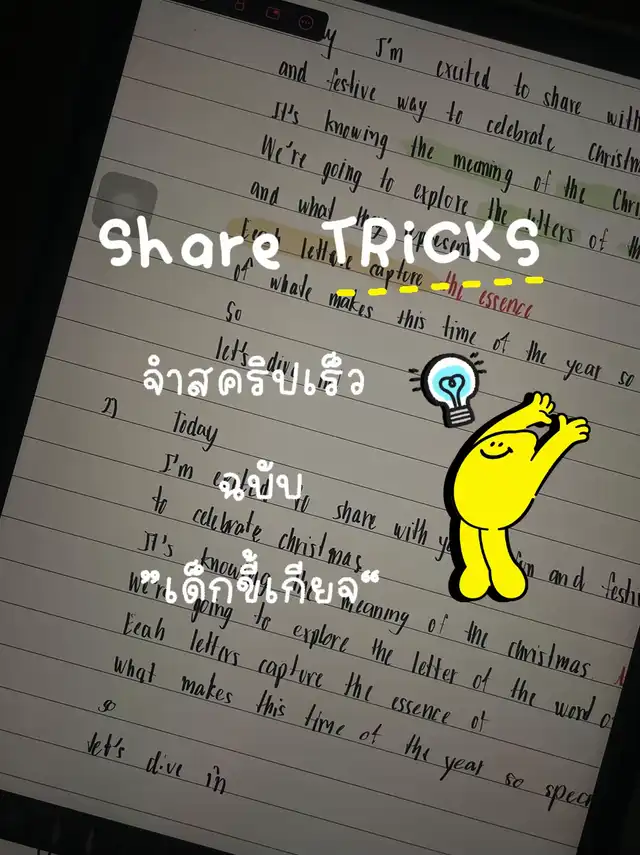 I'm excited to share with
and festive way to celebrate Christm
It's knowing the meaning of the Chri
We're going to explore the letters of th
and what they represent
Share TRiCKS
Eeah letters capture the essence
of whate makes this time of the year so
So
let's dive in
จำสคริปเร็ว
2) Today
I'm excited to share with fun and festi
ฉบับ
to celebrate christmas.
It's knowing the meaning of the christmas.
"เด็กขี้เกียจ"
We're going to explore the letter of the word o
Eeah letters capture the essence of
what makes this time of the year so spec
so
let's dive in